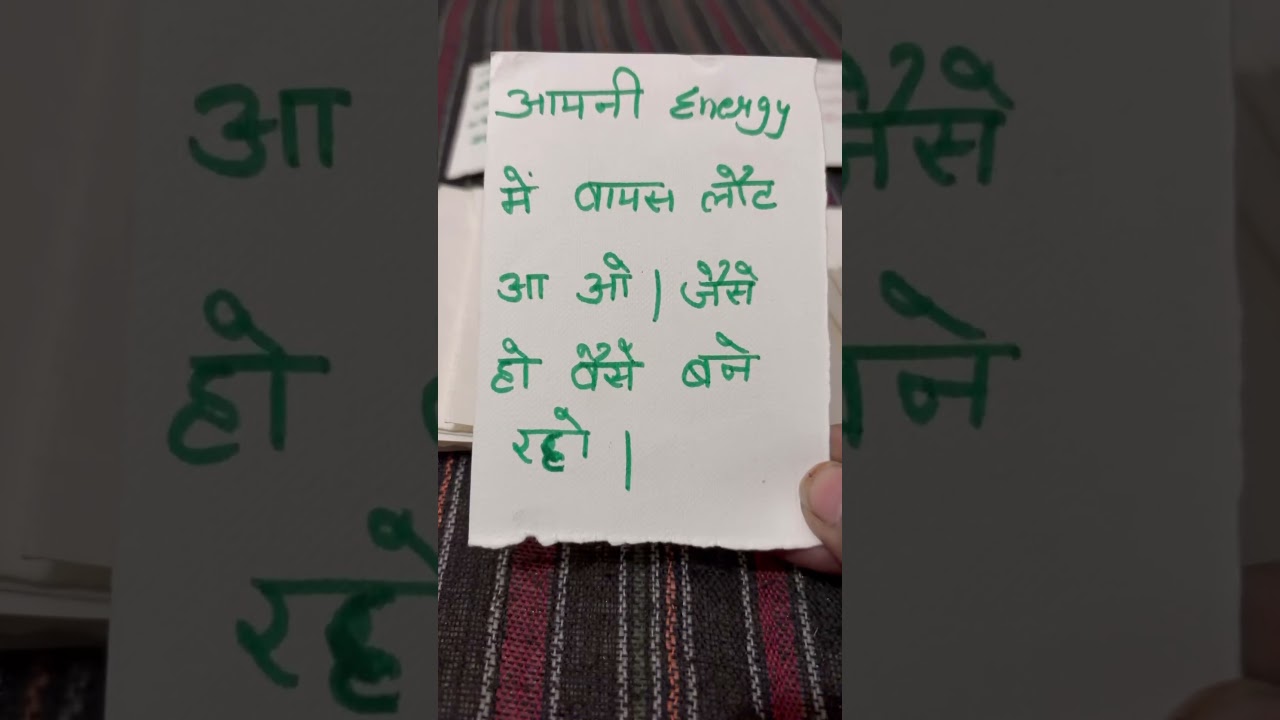 आपनी Energy
में वापस लौट
आ ओ | जैसे
हो वैसे बने
रहो |